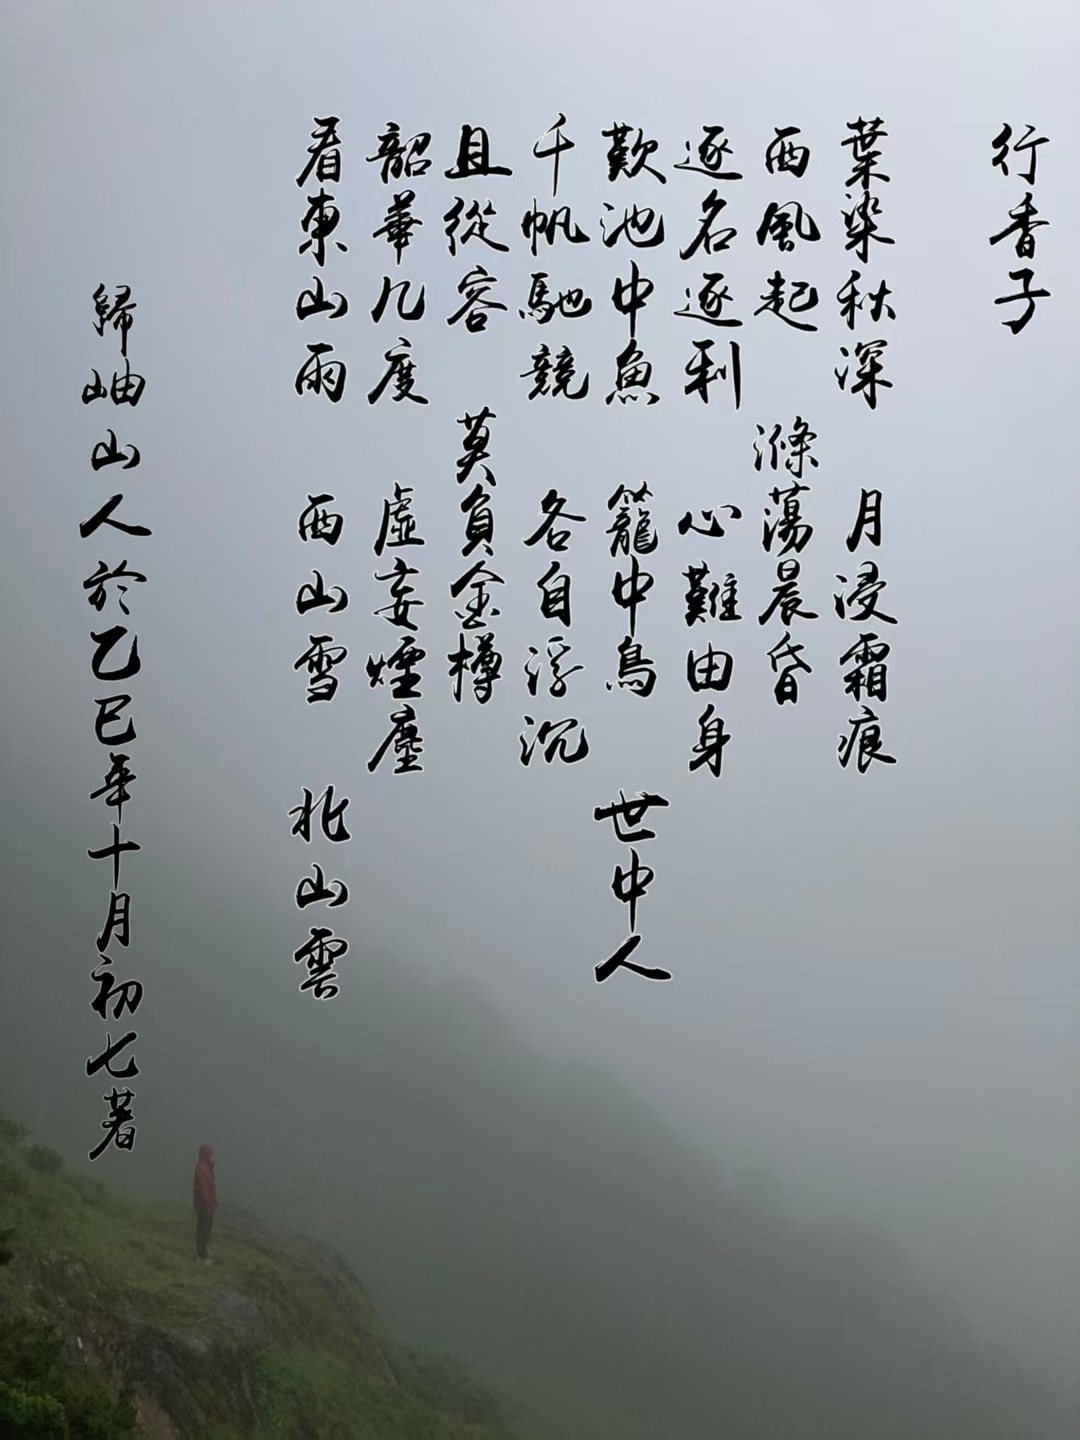 行香子
葉染秋深 月浸霜痕
西風起 滌蕩晨昏
逐名逐利 心難由身
歎池中魚 籠中鳥 世中人
千帆馳競 各自浮沉
且從容 莫負金樽
韶華几度 虛妄煙塵
看東山雨 西山雪 北山雲
歸岫山人於乙巳年十月初七著